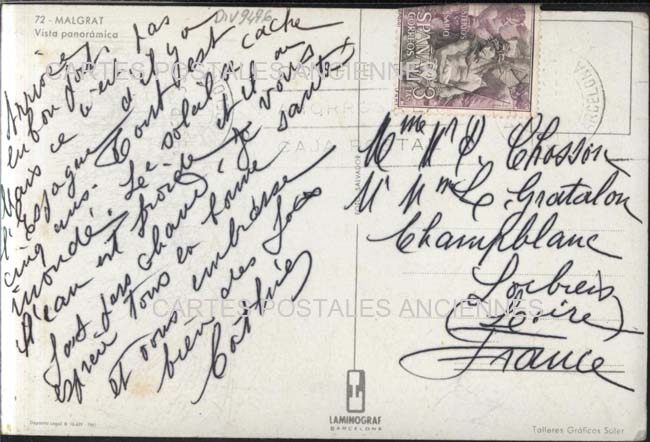 72 - MALGRAT
Vista panorámica
DIV9496
Arrivés
en bon Pas
Mais ce n'est pas
l'Espagne d'il y a
cinq ans. Tout est
inondé. Le soleil se cache
L'eau est froide et il
fait pas chaud. Je vous
espère tous en bonne santé
et vous embrasse
bien des fois
ESPAÑA
CORREOS
CAJA POSTAL
BARCELONA
Mme Mr Chosson
M Mme Gratalon
Champblanc
Sorbiers
(Loire)
France
CARTES POSTALES ANCIENNES
CARTES POSTALES ANCIENNES
FOTO SALVADOR
LAMINOGRAF
BARCELONA
Depósito Legal B.
Talleres Gráficos Súler